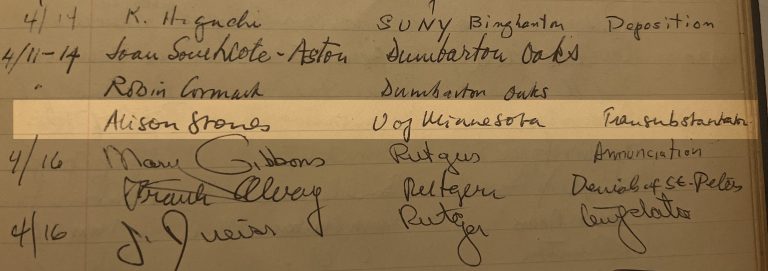 4/14 K. Higuchi SUNY Binghamton Deposition
4/11-14 Joan Southcote-Aston Dumbarton Oaks
" Robin Cormack Dumbarton Oaks
Alison Stones U of Minnesota Transubstantiation
4/16 Mary Gibbons Rutgers Annunciation
Frank Rutgers Denial of St. Peter
4/16 J. Rutger